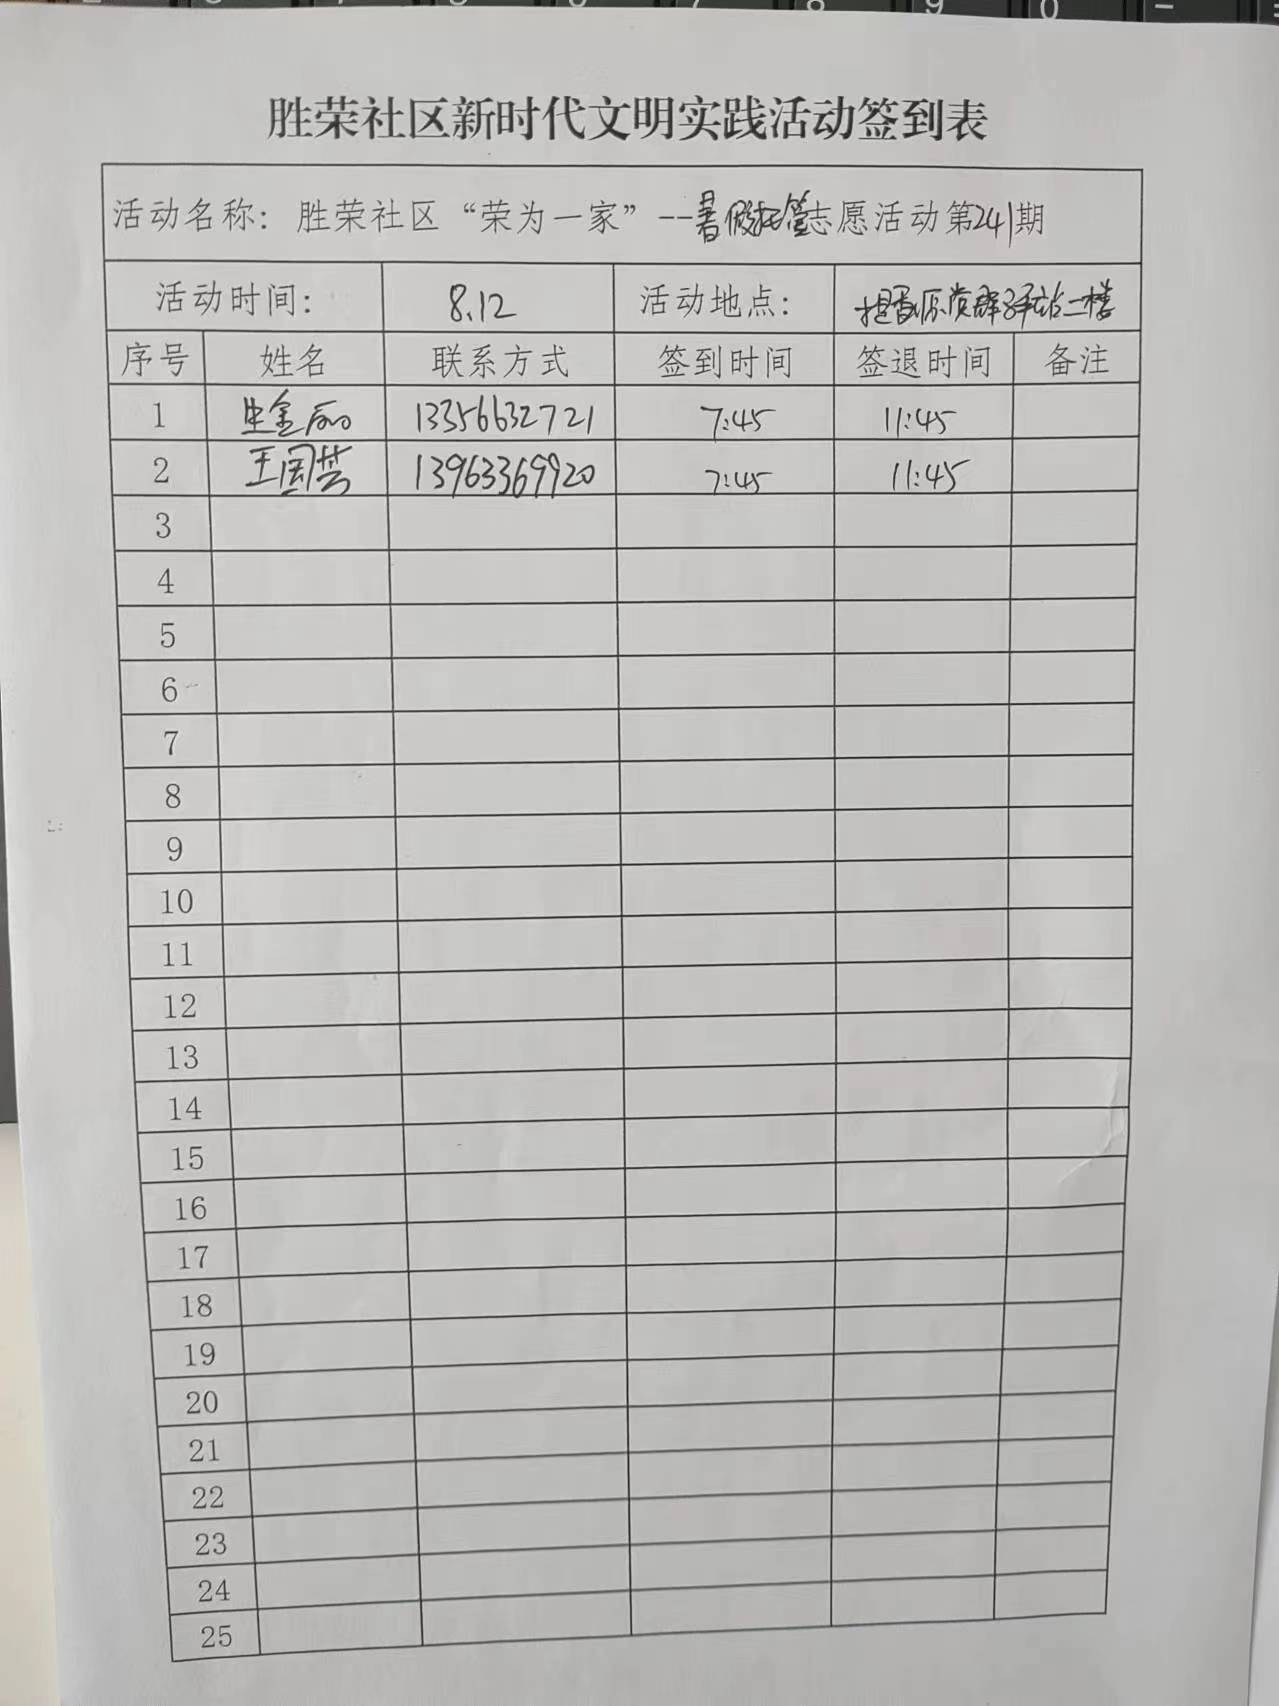 胜荣社区新时代文明实践活动签到表
活动名称：胜荣社区“荣为一家”--暑假托管志愿活动第241期
活动时间： 8.12 活动地点： 党群 站二楼
序号 姓名 联系方式 签到时间 签退时间 备注
1 13356632721 7:45 11:45
2 王国芸 13963369920 7:45 11:45
3
4
5
6
7
8
9
10
11
12
13
14
15
16
17
18
19
20
21
22
23
24
25